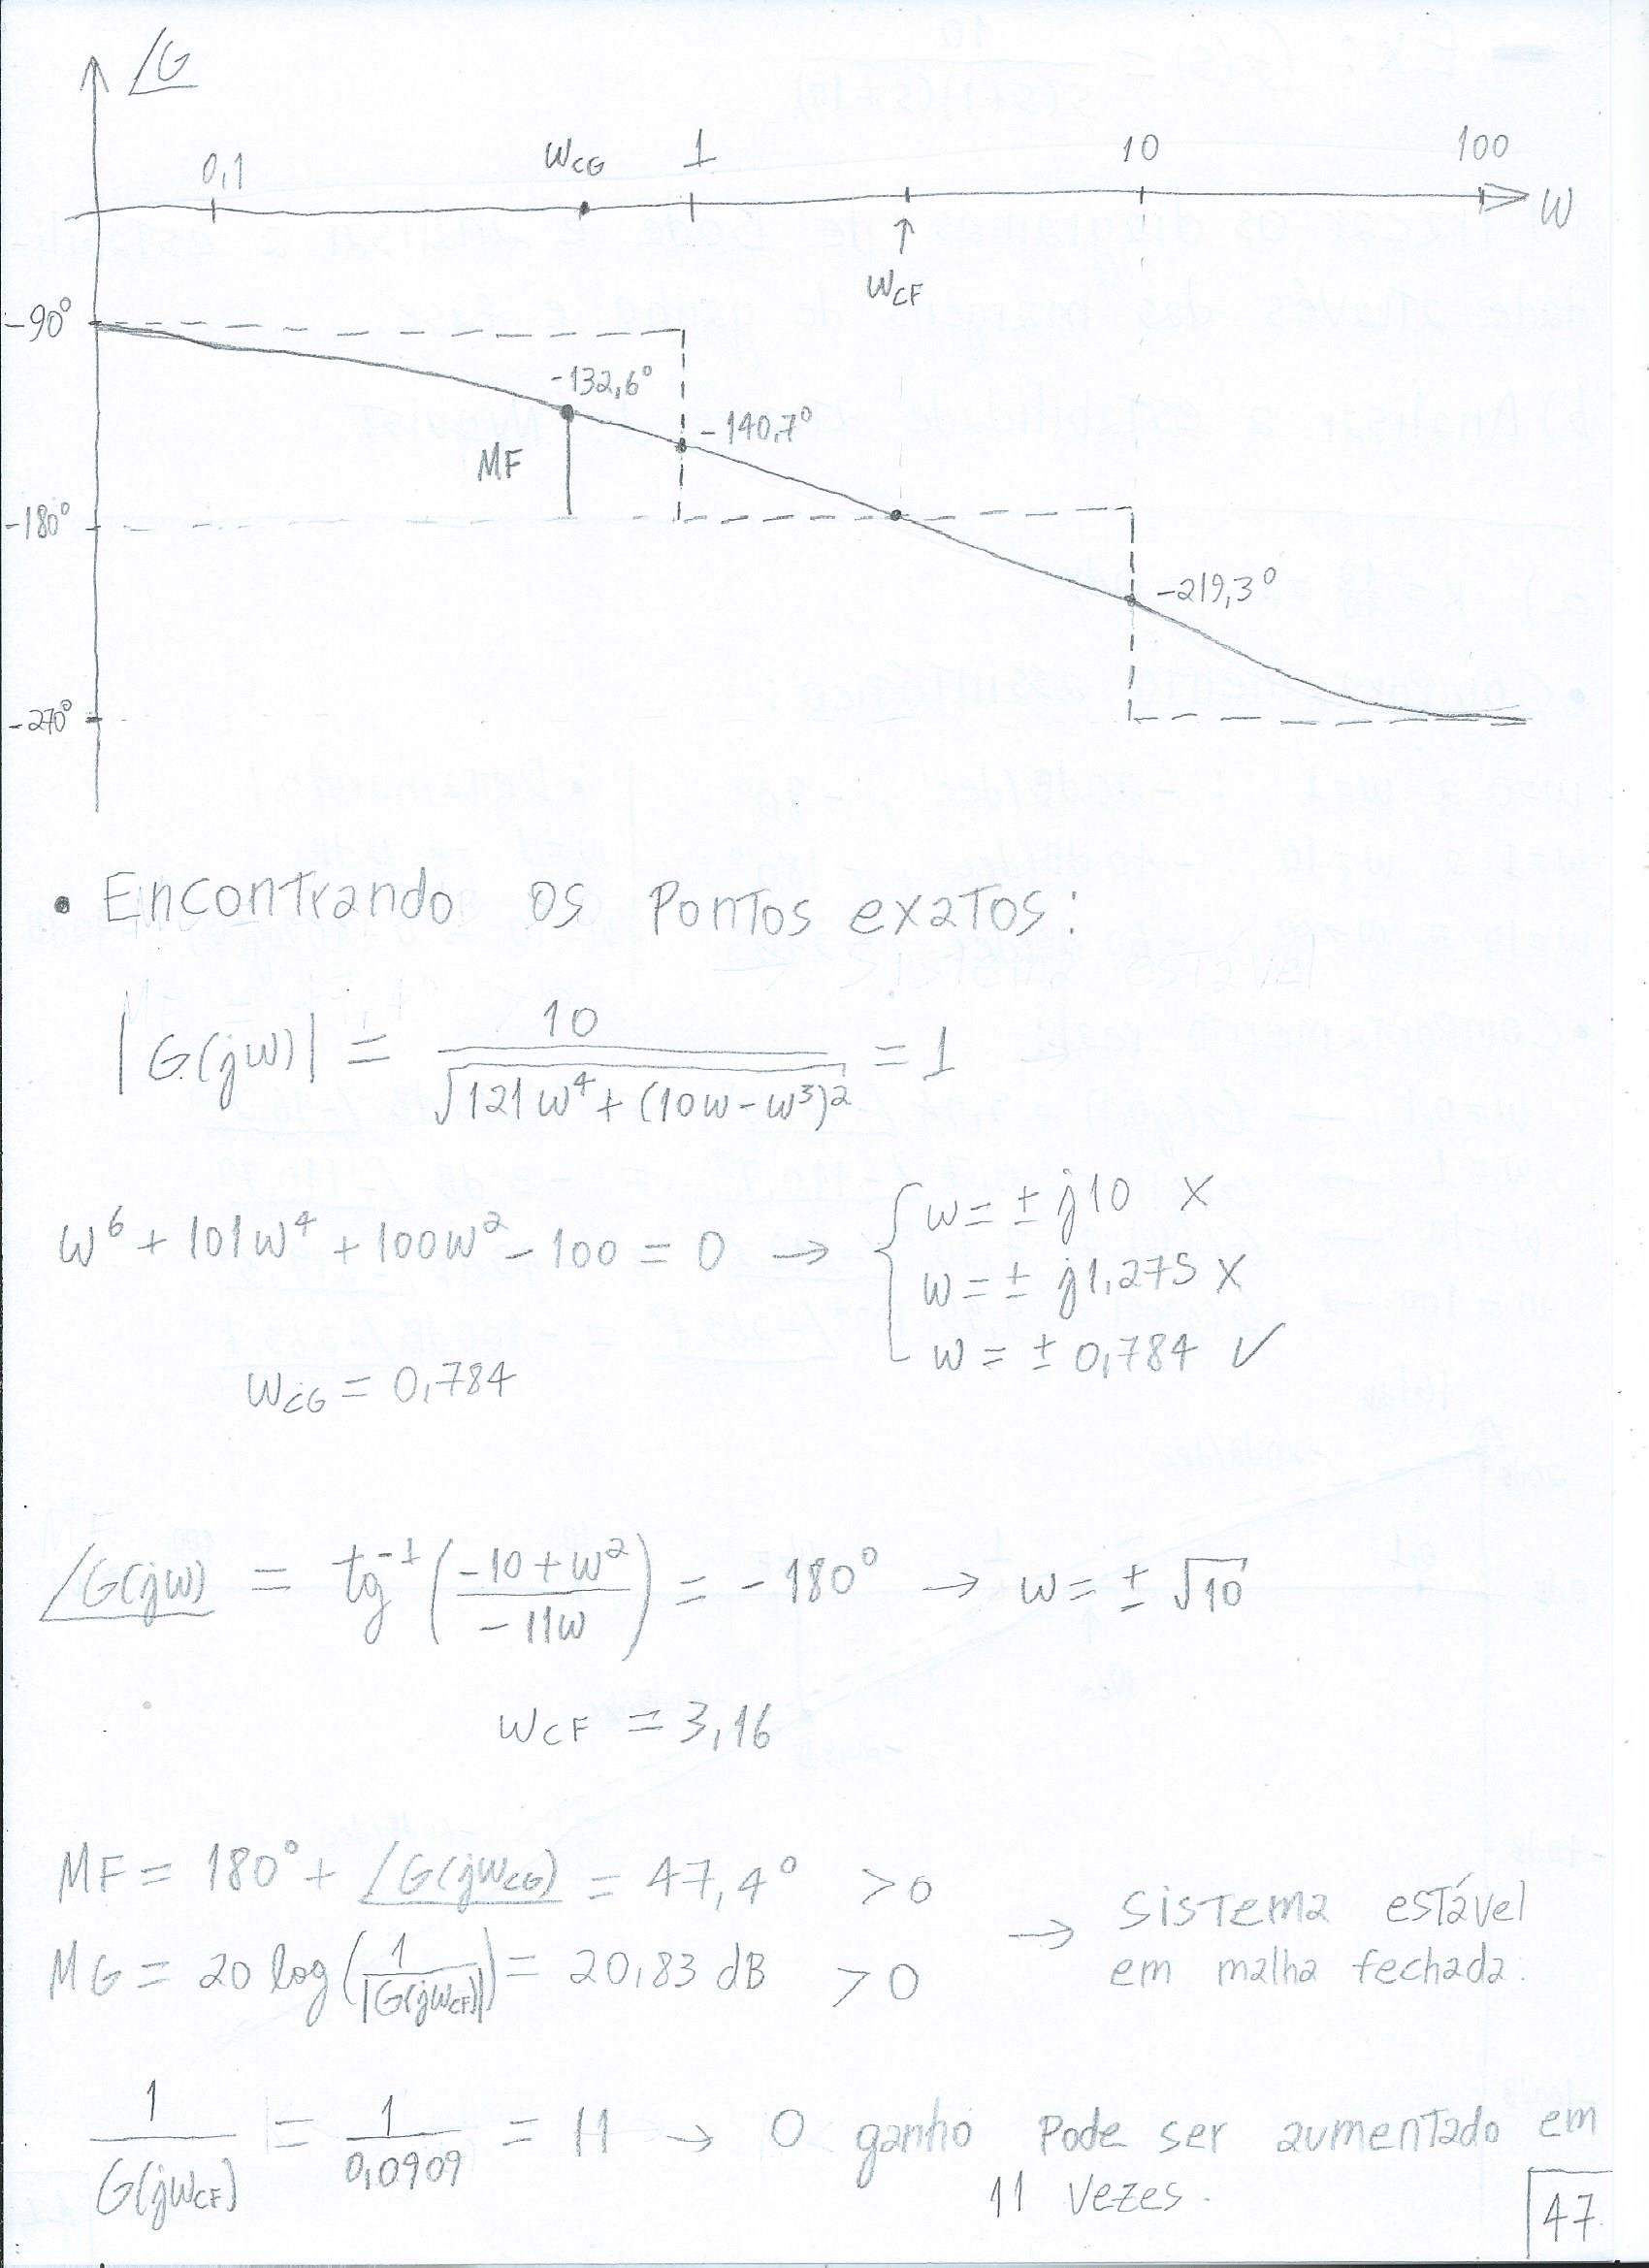 ∠G
0,1 WCG 1 10 100 W
WCF
-90°
-132,6°
-140,7°
MF
-180°
-219,3°
-270°
• Encontrando os pontos exatos:
|G(jω)| = 10 / √(121ω⁴ + (10ω - ω³)²) = 1
ω⁶ + 101ω⁴ + 100ω² - 100 = 0 → { ω = ± j10 X
ω = ± j1,275 X
ω = ± 0,784 ✓
ωCG = 0,784
∠G(jω) = tg⁻¹((-10 + ω²) / (-11ω)) = -180° → ω = ± √10
ωCF = 3,16
MF = 180° + ∠G(jωCG) = 47,4° > 0
MG = 20 log(1 / |G(jωCF)|) = 20,83 dB > 0
→ Sistema estável
em malha fechada.
1 / G(jωCF) = 1 / 0,0909 = 11 → O ganho pode ser aumentado em
11 vezes.
47